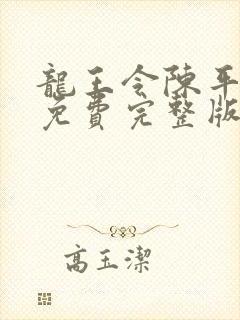 龍王令陳平
免費完整版
高玉潔